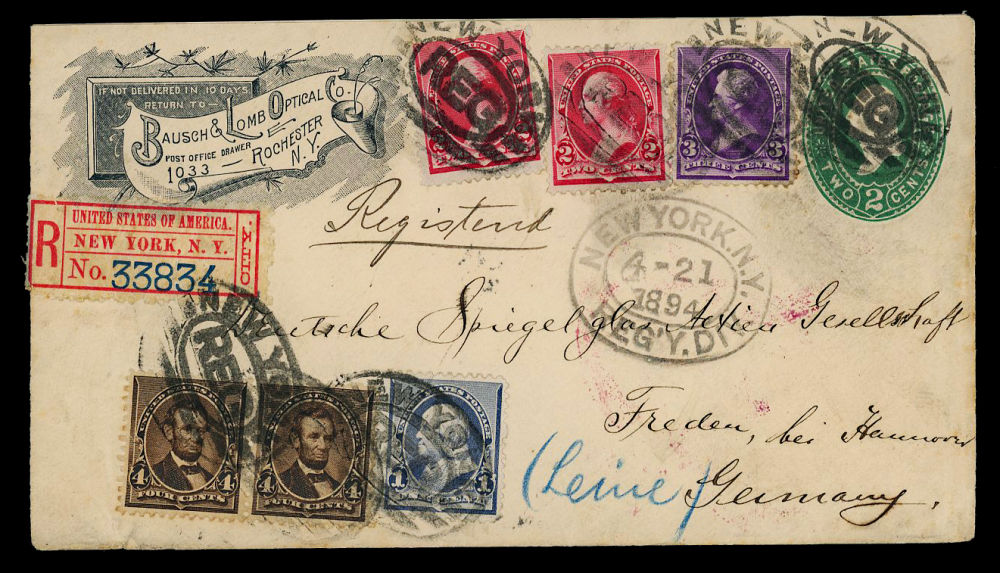 IF NOT DELIVERED IN 10 DAYS
RETURN TO—
BAUSCH & LOMB OPTICAL CO.
POST OFFICE DRAWER
1033
ROCHESTER
N.Y.
NEW YORK
REG
2 2
TWO CENTS
3 3
THREE CENTS
TWO 2 CENTS
R
UNITED STATES OF AMERICA.
NEW YORK, N. Y.
No. 33834
Registered
NEW YORK. N.Y.
4-21
1894
REG'Y. DIV.
Deutsche Spiegelglas Actien Gesellschaft
Freden, bei Hannover
(Leine) Germany.
NEW YORK
REG
4 4
FOUR CENTS
4 4
FOUR CENTS
1 1